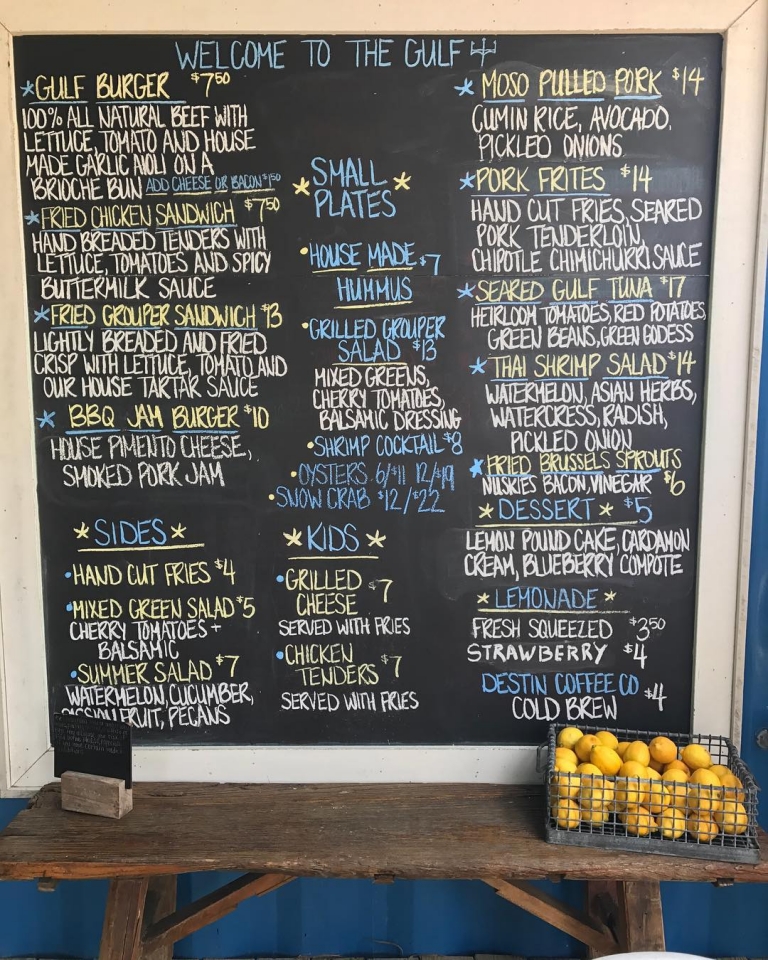 WELCOME TO THE GULF
GULF BURGER $7.50
100% ALL NATURAL BEEF WITH
LETTUCE, TOMATO AND HOUSE
MADE GARLIC AIOLI ON A
BRIOCHE BUN ADD CHEESE OR BACON $1.50
FRIED CHICKEN SANDWICH $7.50
HAND BREADED TENDERS WITH
LETTUCE, TOMATOES AND SPICY
BUTTERMILK SAUCE
FRIED GROUPER SANDWICH $13
LIGHTLY BREADED AND FRIED
CRISP WITH LETTUCE, TOMATO AND
OUR HOUSE TARTAR SAUCE
BBQ JAM BURGER $10
HOUSE PIMENTO CHEESE,
SMOKED PORK JAM
*SIDES*
•HAND CUT FRIES $4
•MIXED GREEN SALAD $5
CHERRY TOMATOES +
BALSAMIC
•SUMMER SALAD $7
WATERMELON, CUCUMBER,
PASSION FRUIT, PECANS
*SMALL
PLATES*
•HOUSE MADE $7
HUMMUS
•GRILLED GROUPER
SALAD $13
MIXED GREENS,
CHERRY TOMATOES,
BALSAMIC DRESSING
•SHRIMP COCKTAIL $8
•OYSTERS 6/$11 12/$19
•SNOW CRAB $12/$22
*KIDS*
•GRILLED
CHEESE $7
SERVED WITH FRIES
•CHICKEN
TENDERS $7
SERVED WITH FRIES
*MOSO PULLED PORK $14
CUMIN RICE, AVOCADO,
PICKLED ONIONS
*PORK FRITES $14
HAND CUT FRIES, SEARED
PORK TENDERLOIN,
CHIPOTLE CHIMICHURRI SAUCE
*SEARED GULF TUNA $17
HEIRLOOM TOMATOES, RED POTATOES,
GREEN BEANS, GREEN GODESS
*THAI SHRIMP SALAD $14
WATERMELON, ASIAN HERBS,
WATERCRESS, RADISH,
PICKLED ONION
*FRIED BRUSSELS SPROUTS
NUSKIES BACON, VINEGAR $6
*DESSERT* $5
LEMON POUND CAKE, CARDAMON
CREAM, BLUEBERRY COMPOTE
*LEMONADE*
FRESH SQUEEZED $3.50
STRAWBERRY $4
DESTIN COFFEE CO $4
COLD BREW